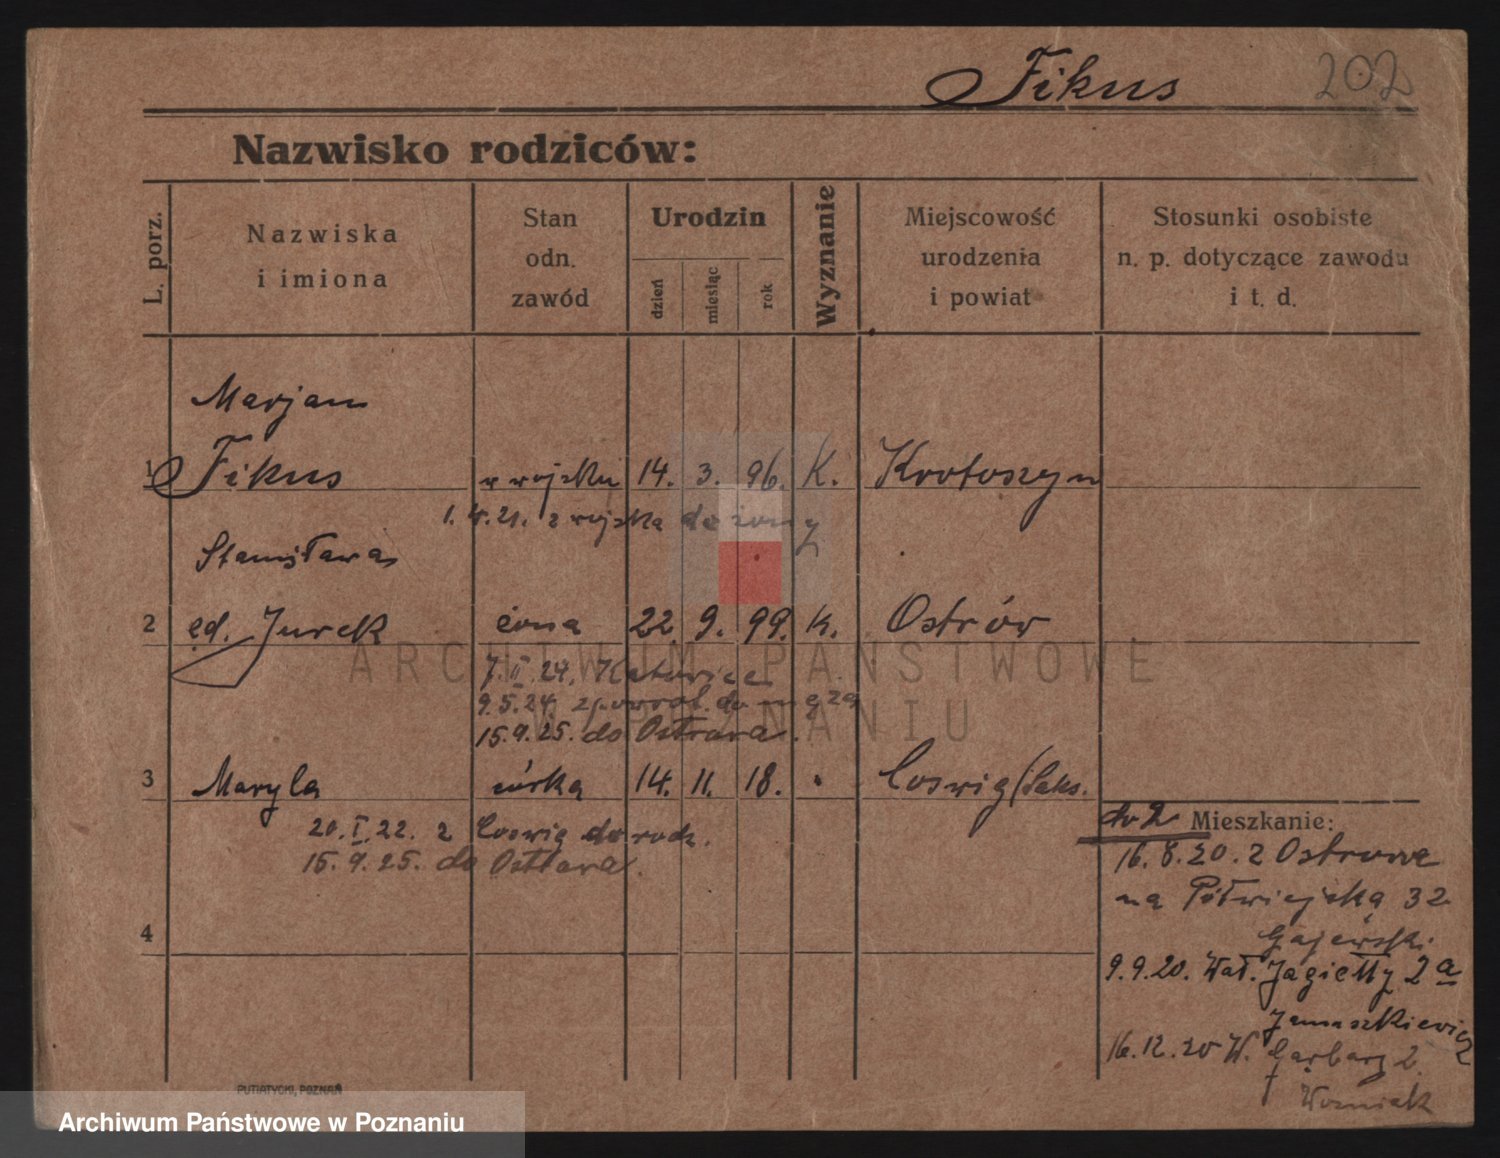 Fikus 202
Nazwisko rodziców:
L. porz.
Nazwiska
i imiona
Stan
odn.
zawód
Urodzin
dzień
miesiąc
rok
Wyznanie
Miejscowość
urodzenia
i powiat
Stosunki osobiste
n. p. dotyczące zawodu
i t. d.
Marjan
1 Fikus w wojsku 14. 3. 96. K. Krotoszyn
1. 4. 21. z wojska do żony
Stanisława
2 Jurek żona 22 9. 99. K. Ostrów
7. II. 24. Katowice
9.5.24. zpowrot. do męża
15.9.25. do Ostrowa.
3 Maryla córka 14. 11. 18. Coswig (Saks.
20. I. 22. z Coswig do rodz.
15. 9. 25. do Ostrowa.
do 2 Mieszkanie:
16. 8. 20. z Ostrowa
na Półwiejską 32
Gajewski.
4
9. 9. 20. Wał. Jagiełły 2a
Januszkiewicz
16. 12. 20 W. Garbary 2.
Woźniak
PUTIATYCKI, POZNAŃ
ARCHIWUM PAŃSTWOWE
W POZNANIU
Archiwum Państwowe w Poznaniu